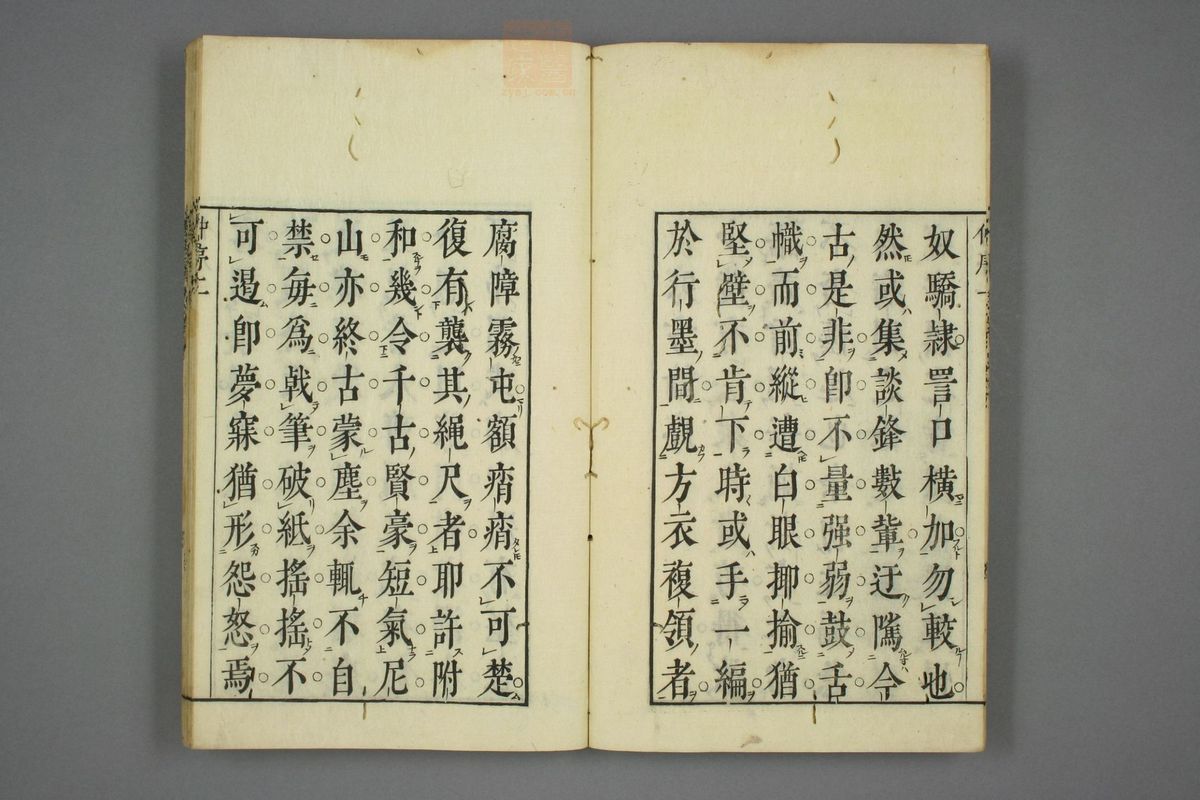 奴驕隷詈口橫加勿較也
然或集談鋒數輩迂隲今
古是非卽不量强弱鼓舌
幟而前縱遭白眼揶揄猶
堅壁不肯下時或手一編
於行墨間覷方衣複領者
腐障霧屯額瘠瘠不可楚
復有襲其繩尺者耶許附
和幾令千古賢豪短氣尼
山亦終古蒙塵余輒不自
禁每爲戟筆破紙搖搖不
可遏卽夢寐猶形怨怒焉